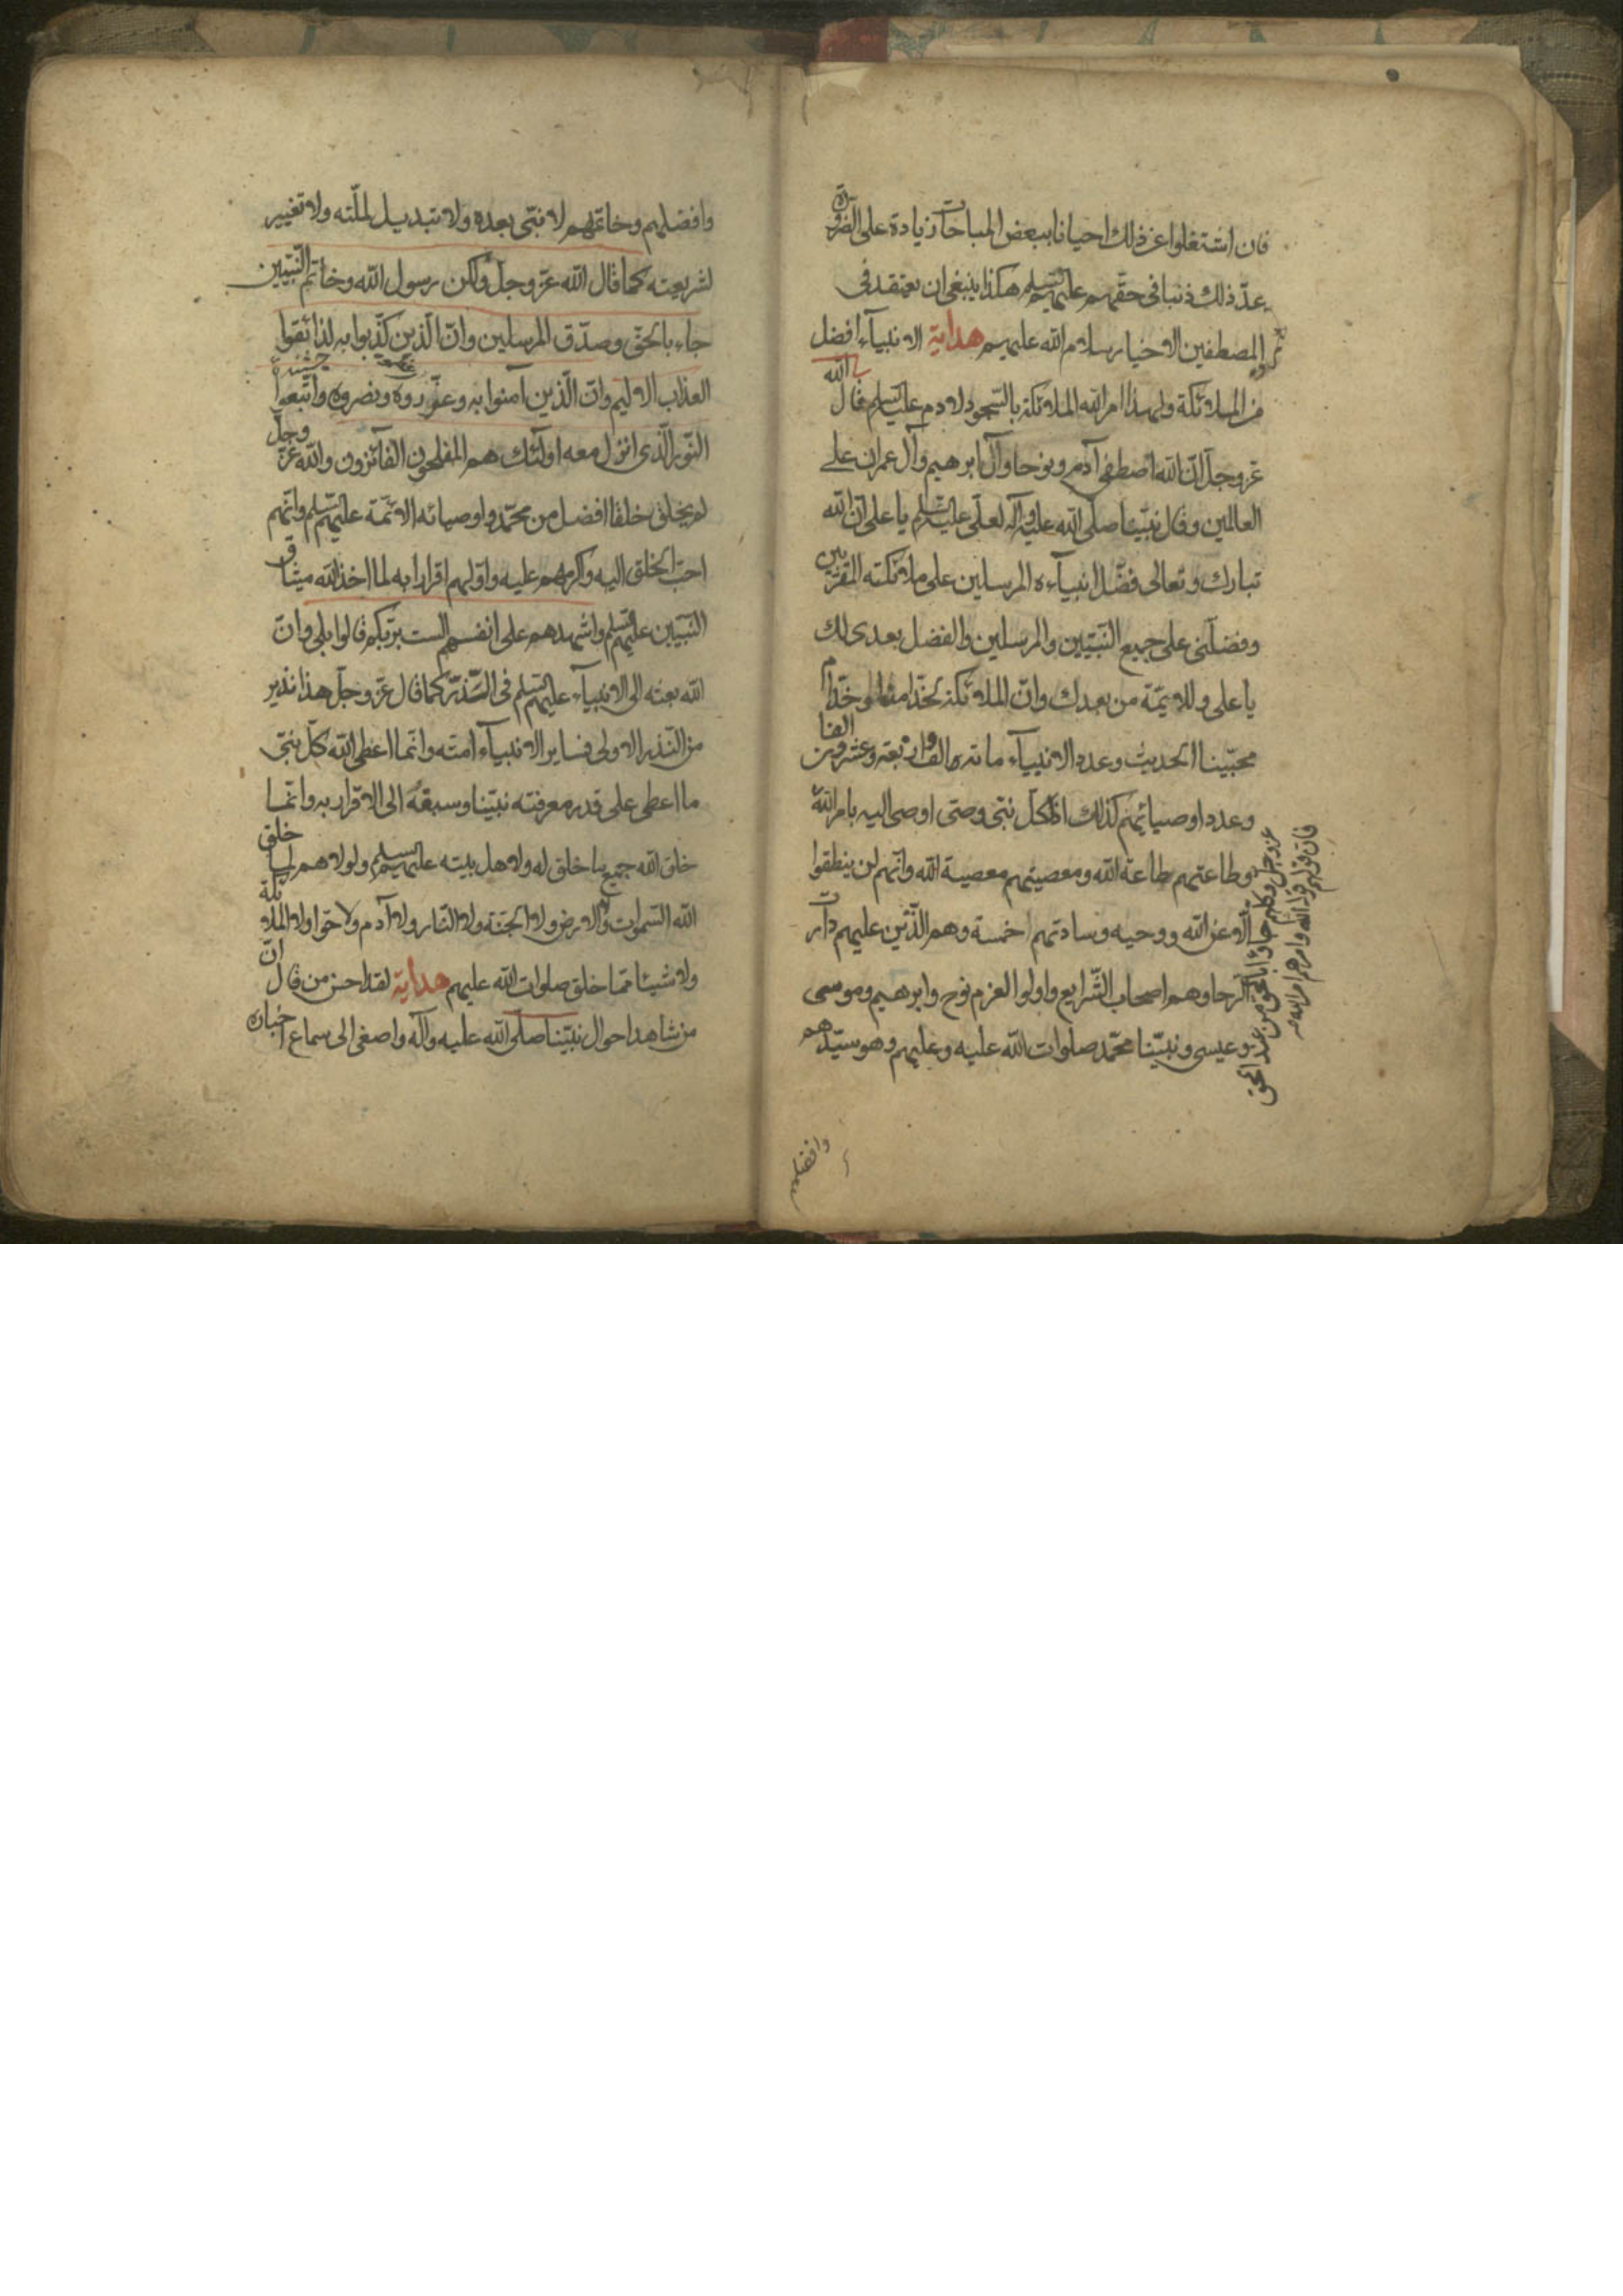 فان اشتغلوا عن ذلك احيانا ببعض المباحات زيادة على الضرورة
عدّ ذلك ذنبا في حقّهم عليهم السلم هكذا ينبغي ان يعتقد في
المصطفين الاخيار سلام الله عليهم هداية الانبيآء افضل
من الملائكة ولهذا امر الله الملائكة بالسّجود لادم عليه السلم قال الله
عزّ وجلّ انّ الله اصطفى آدم ونوحا وآل ابرهيم وآل عمران على
العالمين وقال نبيّنا صلّى الله عليه وآله لعلّي عليه السّلم يا علي انّ الله
تبارك وتعالى فضّل انبيآءه المرسلين على ملائكته المقرّبين
وفضّلني على جميع النّبيّين والمرسلين والفضل بعدي لك
يا علي وللائمّة من بعدك وانّ الملائكة لخدّامنا وخدّام
محبّينا الحديث وعدد الانبيآء مائة الف واربعة وعشرون الفا
وعدد اوصيائهم كذلك اذ لكلّ نبيّ وصيّ اوصى اليه بامر الله
وطاعتهم طاعة الله ومعصيتهم معصية الله وانّهم لن ينطقوا
الّا عن الله ووحيه وسادتهم خمسة وهم الّذين عليهم دارت
الرحا وهم اصحاب الشّرايع واولوا العزم نوح وابرهيم وموسى
وعيسى ونبيّنا محمّد صلوات الله عليه وعليهم وهو سيّدهم
عزّ وجلّ وكلهم جاؤا بالحق من عند الحق
فانّ قولهم قول الله وامرهم امر الله
وافضلهم
وافضلهم وخاتمهم لا نبيّ بعده ولا تبديل لملّته ولا تغيير
لشريعته كما قال الله عزّ وجلّ ولكن رسول الله وخاتم النّبيّين
جاء بالحقّ وصدّق المرسلين وانّ الّذين كذّبوا به لذائقوا
العذاب الاليم وانّ الّذين آمنوا به وعزّروه ونصروه واتّبعوا
النّور الّذي انزل معه اولئك هم المفلحون الفائزون والله عزّ وجلّ
لم يخلق خلقا افضل من محمّد واوصيائه الائمّة عليهم السّلم وانّهم
احبّ الخلق اليه واكرمهم عليه واوّلهم اقرارا به لما اخذ الله ميثاق
النّبيّين عليهم السّلم واشهدهم على انفسهم الست بربّكم قالوا بلى وانّ
الله بعثه الى الانبيآء عليهم السّلم في الذّرّ كما قال عزّ وجلّ هذا نذير
من النّذر الاولى فساير الانبيآء امّته وانّما اعطى الله كلّ نبيّ
ما اعطى على قدر معرفته نبيّنا وسبقه الى الاقرار به وانّما
خلق الله جميع ما خلق له ولاهل بيته عليهم السلم ولولاهم لما خلق
الله السّموات والارض ولا الجنّة ولا النّار ولا آدم ولا حوا ولا الملائكة
ولا شيئا ممّا خلق صلوات الله عليهم هداية لقد احسن من قال انّ
من شاهد احوال نبيّنا صلّى الله عليه وآله واصغى الى سماع اخباره